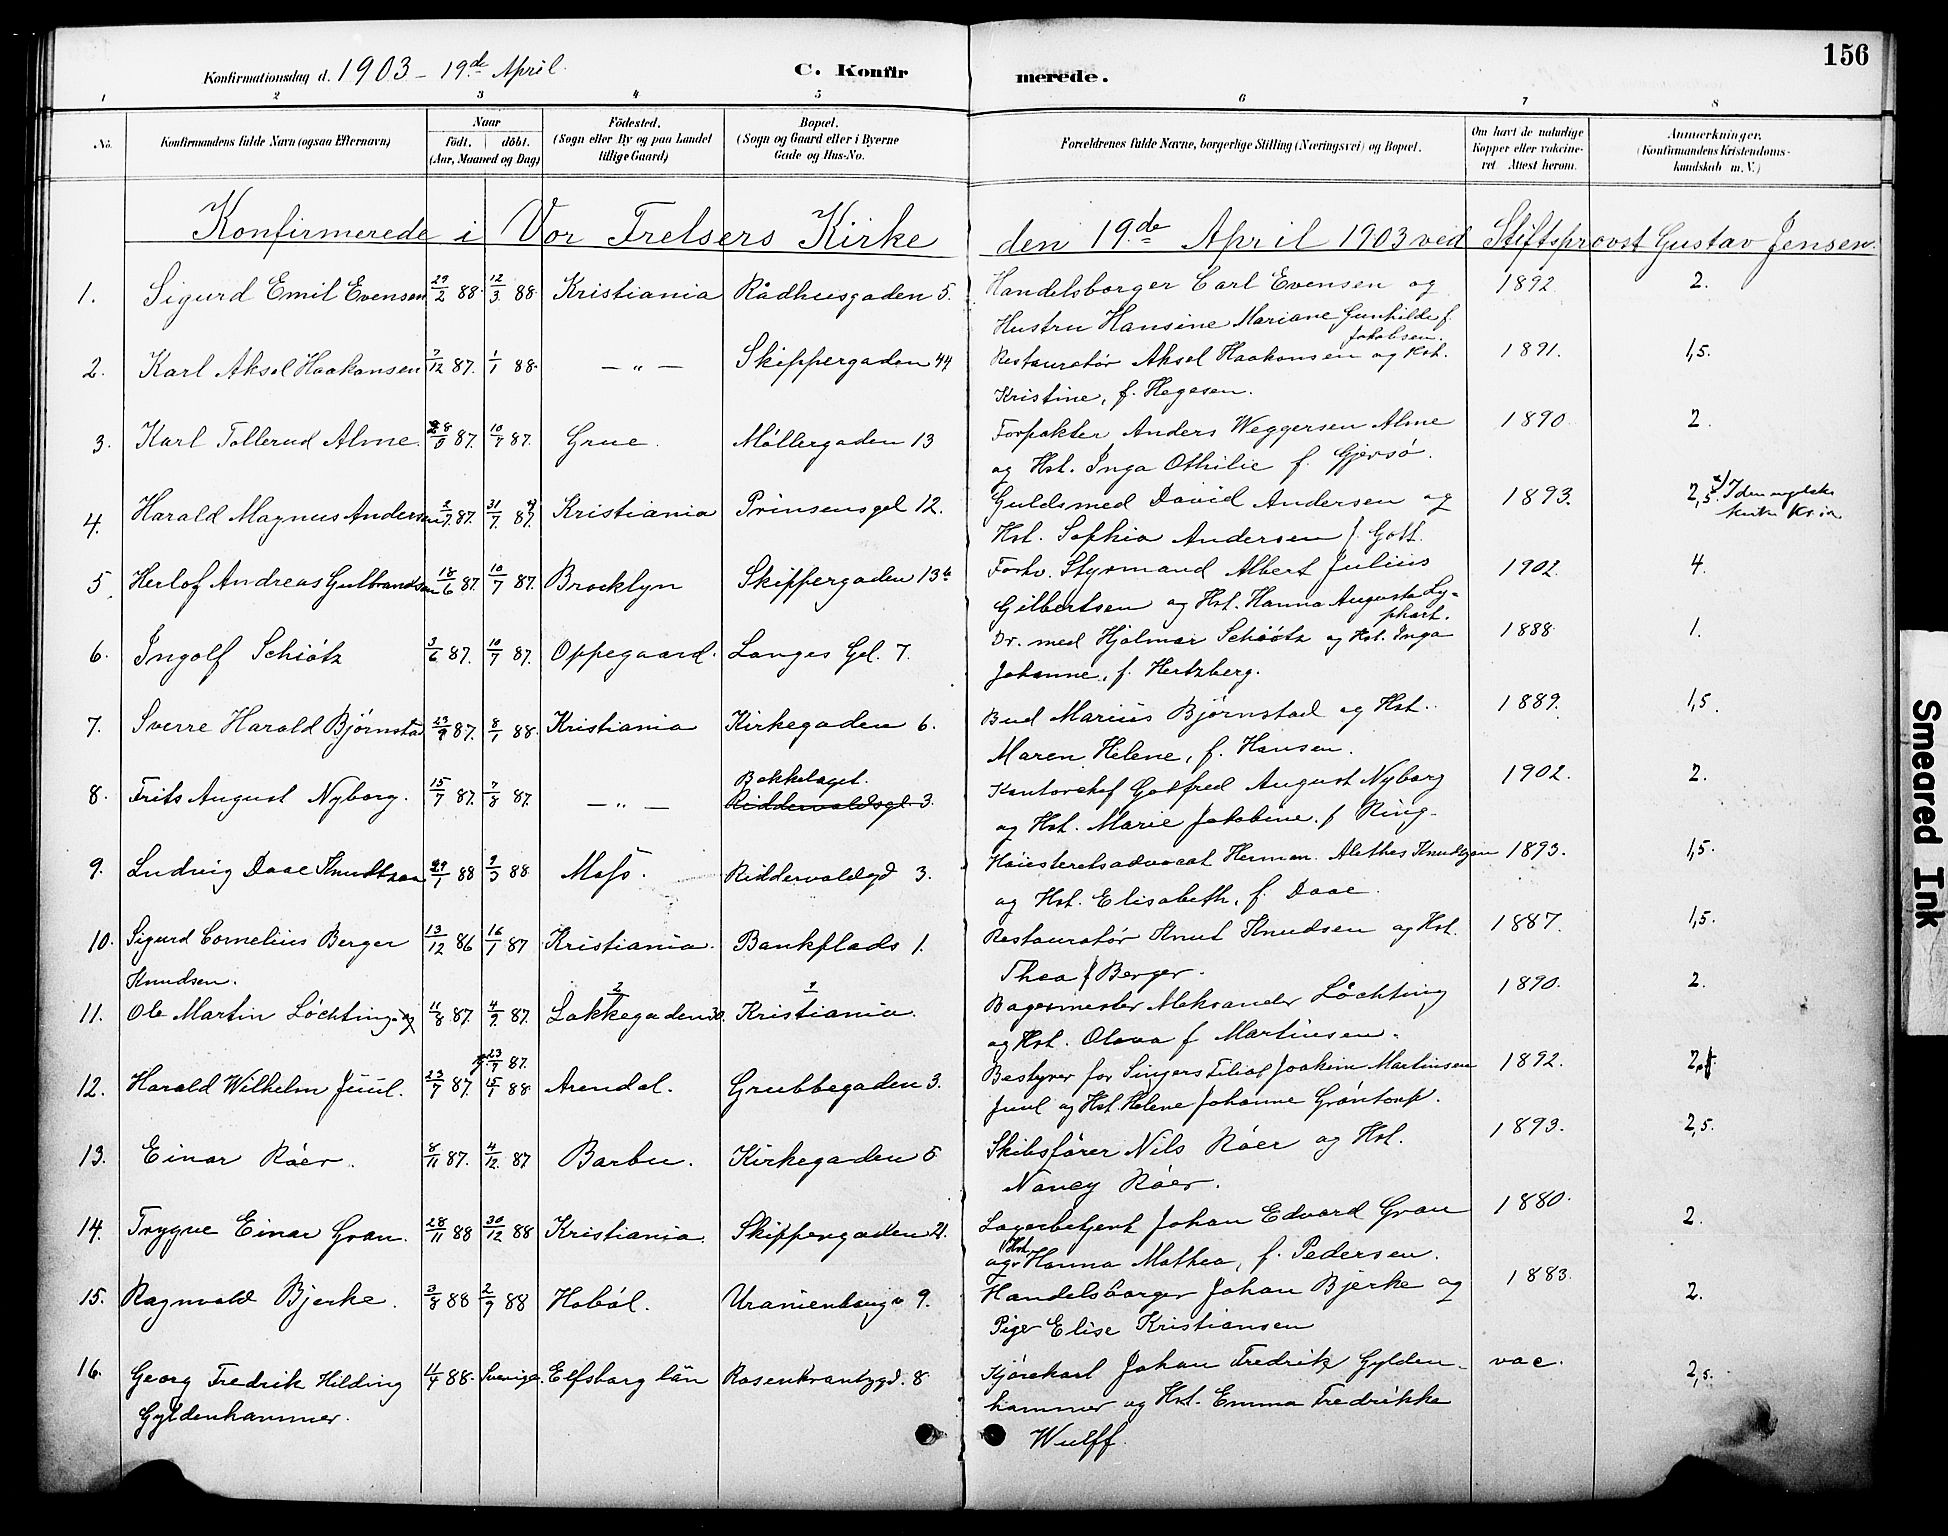 156
Konfirmationsdag d. 1903 – 19de April.
C. Konfirmerede.
1 2 3 4 5 6 7 8
No.
Konfirmandens fulde Navn (ogsaa Efternavn)
Naar
født. døbt.
(Aar, Maaned og Dag)
Fødested.
(Sogn eller By og paa Landet
tillige Gaard)
Bopæl.
(Sogn og Gaard eller i Byerne
Gade og Hus-No.
Forældrenes fulde Navne, borgerlige Stilling (Næringsvei) og Bopæl.
Om havt de naturlige
Kopper eller vakcine-
ret Attest herom.
Anmærkninger.
(Konfirmandens Kristendoms-
kundskab m. V.)
Konfirmerede i Vor Frelsers Kirke den 19de April 1903 ved Stiftsprovst Gustav Jensen.
1. Sigurd Emil Evensen 29/2 88. 12/3 88 Kristiania Rådhusgaden 5. Handelsborger Carl Evensen og 1892 2.
Hustru Hansine Mariane Gunhilde f.
Jakobsen.
2. Karl Aksel Haakonsen 7/12 87. 1/1 88. — " — Skippergaden 44 Restauratør Aksel Haakonsen og Hst. 1891. 1,5.
Kristine, f. Hegesen.
3. Karl Tollerud Alme. 87. 10/7 87. Grue. Møllergaden 13 Forpakter Anders Weggersen Alme 1890 2.
og Hst. Inga Othilie f. Gjersø.
4. Harald Magnus Andersen 87. 31/7 87. Kristiania Prinsensgd 12. Guldsmed David Andersen og 1893. 2,5. x) I den
Hst. Sophia Andersen f. Gott. Kr.ia
5. Herlof Andreas Gulbrandsen 18/6 87. 10/7 87. Brooklyn Skippergaden 13b Forhv. Styrmand Albert Julius 1902. 4.
Gilbertsen og Hst. Hanna Augusta Ly-
phart.
6. Ingolf Schiøtz 3/6 87. 10/7 87. Oppegaard. Langes Gd. 7. Dr. med Hjalmar Schiøtz og Hst. Inga 1888 1.
Johanne, f. Hertzberg.
7. Sverre Harald Bjørnstad 29/9 87. 8/1 88. Kristiania Kirkegaden 6. Bud Marius Bjørnstad og Hst. 1889. 1,5.
Maren Helene, f. Hansen.
Bakkelaget.
8. Frits August Nyborg. 15/7 87. 7/8 87. — " — Riddervoldsgd. 3. Kontorchef Gotfred August Nyborg 1902. 2.
og Hst. Marie Jakobine f. Ring.
9. Ludvig Daae Knudtzon 29/1 88 9/3 88 Moss. Riddervoldsgd 3. Høiesteretsadvocat Herman Alethes Knudtzon 1893. 1,5.
og Hst. Elisabeth, f. Daae.
10. Sigurd Cornelius Berger 13/12 86 16/1 87 Kristiania. Bankplads 1. Restauratør Knut Knudsen og Hst. 1887. 1,5.
Knudsen. Thea f Berger.
2 1
11. Ole Martin Løchting 11/8 87. 4/9 87. Lakkegaden 30. Kristiania. Bagermester Aleksander Løchting 1890. 2.
og Hst. Olava f Martinsen.
23/7 87.
12. Harald Wilhelm Juul. 23/7 87. 15/1 88 Arendal. Grubbegaden 3. Bestyrer for Singers Filial Joakim Martinsen 1892. 2.
Juul og Hst. Helene Johanne Grøntorp.
13. Einar Røer. 8/11 87. 4/12 87 Barbu. Kirkegaden 5 Skibsfører Nils Røer og Hst. 1893. 2,5.
Nancy Røer.
14. Trygve Einar Gran. 28/11 88 30/12 88 Kristiania. Skippergaden 21. Lagerbetjent Johan Edvard Gran 1880. 2.
og Hst. Hanna Mathea, f. Pedersen.
15. Ragnvald Bjerke. 3/8 88 2/9 88 Hobøl. Uranienborg v 9. Handelsborger Johan Bjerke og 1883. 2.
Pige Elise Kristiansen
16. Georg Fredrik Hilding 11/4 88. Sverige. Elfsborg län Rosenkrantzgd. 8 Kjørekarl Johan Fredrik Gylden- vac. 2,5.
Gyldenhammer. hammer og Hst. Emma Fredrikke
Wulff.
Smeared Ink